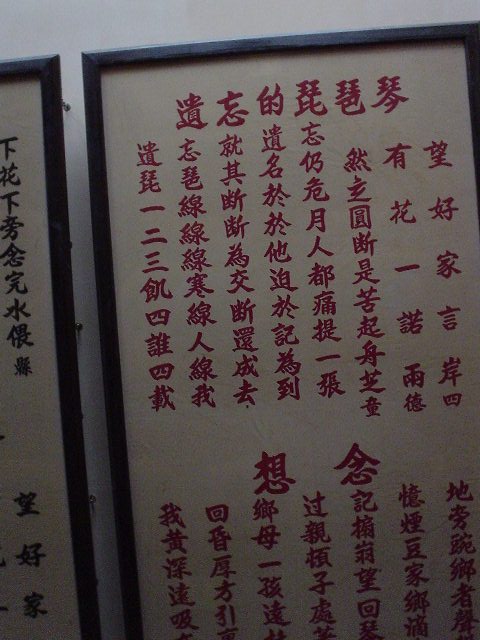 遺忘的琵琶琴
望好家言岸四
有花一諾兩德
然走圓斷是苦起舟芝童
忘仍危月人都痛提一張
遺名於於他迫於記為到
就其斷斷為交斷還成去
忘琶線線線寒線人線我
遺琵一二三飢四誰四載
想念
地旁豌鄉者聲
憶煙豆家鄉滴
記擱翁望回琴
过親頻子處
鄉母一孩遠
回昏厚方引
我黃深遠吸
望好家
下花下旁念完水偎縣